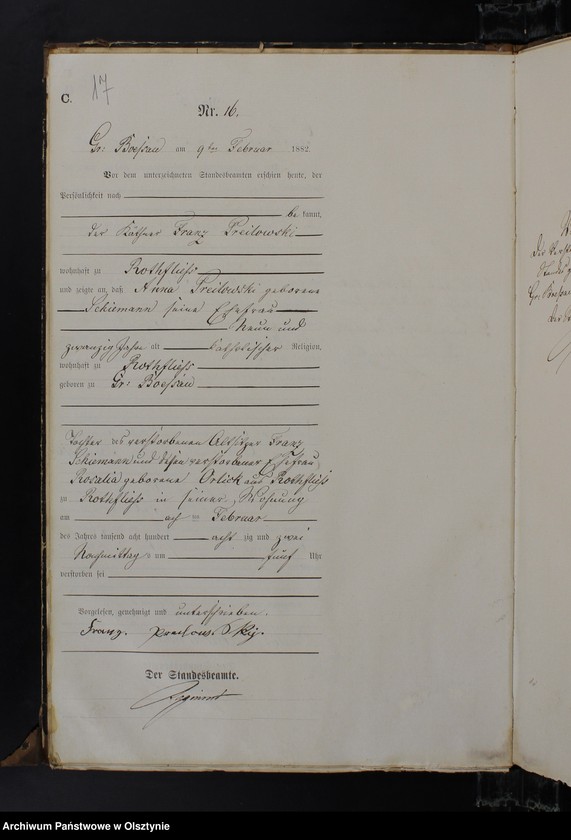 C.
17
Nr. 16.
Gr: Boessau am 9 ten Februar 1882.
Vor dem unterzeichneten Standesbeamten erschien heute, der
Persönlichkeit nach
be kannt,
der Käthner Franz Preilowski
wohnhaft zu Rothfliess
und zeigte an, daß Anna Preilowski geborene
Schiemann seine Ehefrau
Neun und
zwanzig Jahre alt katholischer Religion,
wohnhaft zu Rothfliess
geboren zu Gr: Boessau
Tochter des verstorbenen Altsitzer Franz
Schiemann und dessen verstorbener Ehefrau
Rosalia geborene Orlick aus Rothfliess
zu Rothfliess in seiner Wohnung
am acht ten Februar
des Jahres tausend acht hundert acht zig und zwei
Nachmittag s um fünf Uhr
verstorben sei
Vorgelesen, genehmigt und unterschrieben.
Franz
Der Standesbeamte.
der
Gr. Boessau
Archiwum Państwowe w Olsztynie